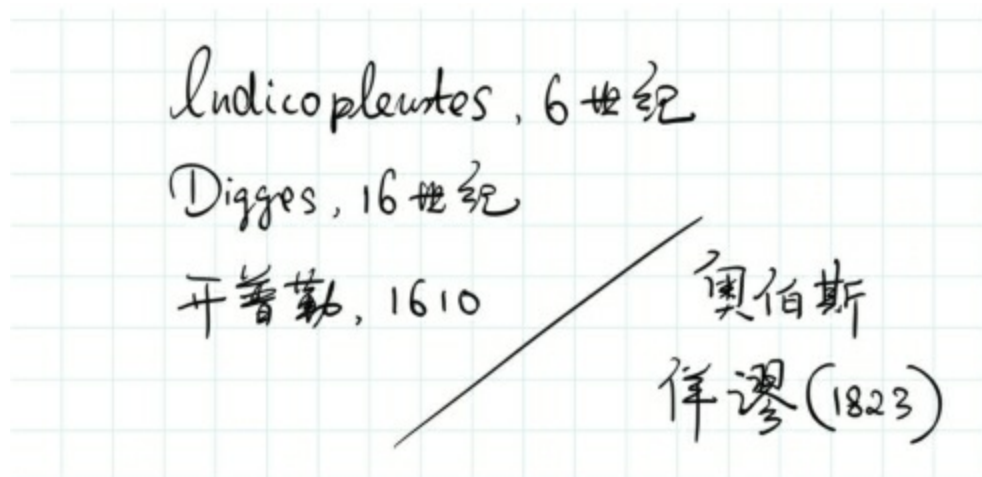 Indicopleustes, 6世纪
Digges, 16世纪
开普勒, 1610
奥伯斯
佯谬(1823)